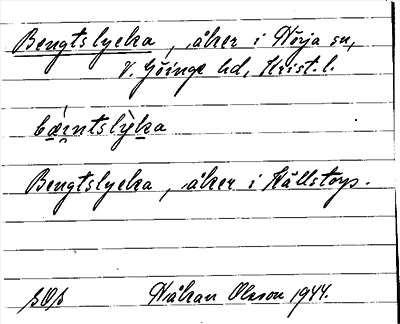 Bengtslycka, åker i Nörja sn,
V. Göinge hd, Krist. l.
bæ̀i̯ntslỳka
Bengtslycka, åker i Källstorp.
SOS Håkan Olsson 1944.